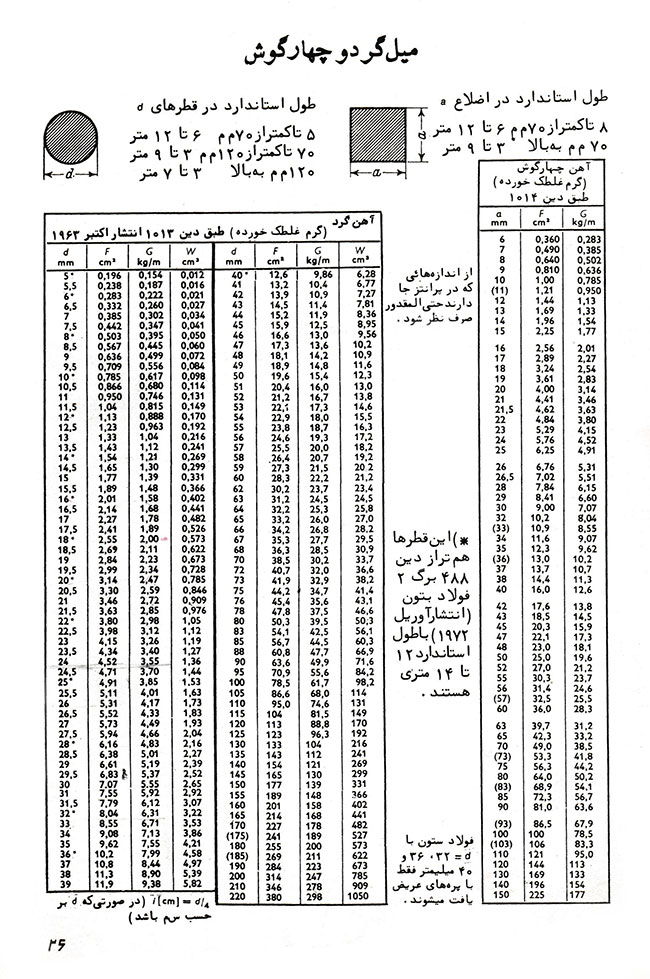 میل‌گرد و چهارگوش
طول استاندارد در اضلاع a
۸ تاکمتراز۷۰مم ۶ تا ۱۲ متر
۷۰ مم به‌بالا ۳ تا ۹ متر
طول استاندارد در قطرهای d
۵ تاکمتراز۷۰مم ۶ تا ۱۲ متر
۷۰ تاکمتراز۱۲۰مم ۳ تا ۹ متر
۱۲۰مم به‌بالا ۳ تا ۷ متر
d
a
a
آهن چهارگوش
(گرم غلطک خورده)
طبق دین ۱۰۱۴
a F G
mm cm² kg/m
6 0,360 0,283
7 0,490 0,385
8 0,640 0,502
9 0,810 0,636
10 1,00 0,785
(11) 1,21 0,950
12 1,44 1,13
13 1,69 1,33
14 1,96 1,54
15 2,25 1,77
16 2,56 2,01
17 2,89 2,27
18 3,24 2,54
19 3,61 2,83
20 4,00 3,14
21 4,41 3,46
21,5 4,62 3,63
22 4,84 3,80
23 5,29 4,15
24 5,76 4,52
25 6,25 4,91
26 6,76 5,31
26,5 7,02 5,51
28 7,84 6,15
29 8,41 6,60
30 9,00 7,07
32 10,2 8,04
(33) 10,9 8,55
34 11,6 9,07
35 12,3 9,62
(36) 13,0 10,2
37 13,7 10,7
38 14,4 11,3
40 16,0 12,6
42 17,6 13,8
43 18,5 14,5
45 20,3 15,9
47 22,1 17,3
48 23,0 18,1
50 25,0 19,6
52 27,0 21,2
55 30,3 23,7
56 31,4 24,6
(57) 32,5 25,5
60 36,0 28,3
63 39,7 31,2
65 42,3 33,2
70 49,0 38,5
(73) 53,3 41,8
75 56,3 44,2
80 64,0 50,2
(83) 68,9 54,1
85 72,3 56,7
90 81,0 63,6
(93) 86,5 67,9
100 100 78,5
(103) 106 83,3
110 121 95,0
120 144 113
130 169 133
140 196 154
150 225 177
آهن گرد
(گرم غلطک خورده) طبق دین ۱۰۱۳ انتشار اکتبر ۱۹۶۳
d F G W d F G W
mm cm² kg/m cm³ mm cm² kg/m cm³
5* 0,196 0,154 0,012 40* 12,6 9,86 6,28
5,5 0,238 0,187 0,016 41 13,2 10,4 6,77
6* 0,283 0,222 0,021 42 13,9 10,9 7,27
6,5 0,332 0,260 0,027 43 14,5 11,4 7,81
7 0,385 0,302 0,034 44 15,2 11,9 8,36
7,5 0,442 0,347 0,041 45 15,9 12,5 8,95
8* 0,503 0,395 0,050 46 16,6 13,0 9,56
8,5 0,567 0,445 0,060 47 17,3 13,6 10,2
9 0,636 0,499 0,072 48 18,1 14,2 10,9
9,5 0,709 0,556 0,084 49 18,9 14,8 11,6
10* 0,785 0,617 0,098 50 19,6 15,4 12,3
10,5 0,866 0,680 0,114 51 20,4 16,0 13,0
11 0,950 0,746 0,131 52 21,2 16,7 13,8
11,5 1,04 0,815 0,149 53 22,1 17,3 14,6
12* 1,13 0,888 0,170 54 22,9 18,0 15,5
12,5 1,23 0,963 0,192 55 23,8 18,7 16,3
13 1,33 1,04 0,216 56 24,6 19,3 17,2
13,5 1,43 1,12 0,241 57 25,5 20,0 18,2
14* 1,54 1,21 0,269 58 26,4 20,7 19,2
14,5 1,65 1,30 0,299 59 27,3 21,5 20,2
15 1,77 1,39 0,331 60 28,3 22,2 21,2
15,5 1,89 1,48 0,366 62 30,2 23,7 23,4
16* 2,01 1,58 0,402 63 31,2 24,5 24,5
16,5 2,14 1,68 0,441 64 32,2 25,3 25,8
17 2,27 1,78 0,482 65 33,2 26,0 27,0
17,5 2,41 1,89 0,526 66 34,2 26,8 28,2
18* 2,55 2,00 0,573 67 35,3 27,7 29,5
18,5 2,69 2,11 0,622 68 36,3 28,5 30,9
19 2,84 2,23 0,673 70 38,5 30,2 33,7
19,5 2,99 2,34 0,728 72 40,7 32,0 36,6
20* 3,14 2,47 0,785 73 41,9 32,9 38,2
20,5 3,30 2,59 0,846 75 44,2 34,7 41,4
21 3,46 2,72 0,909 76 45,4 35,6 43,1
21,5 3,63 2,85 0,976 78 47,8 37,5 46,6
22* 3,80 2,98 1,05 80 50,3 39,5 50,3
22,5 3,98 3,12 1,12 83 54,1 42,5 56,1
23 4,15 3,26 1,19 85 56,7 44,5 60,3
23,5 4,34 3,40 1,27 88 60,8 47,7 66,9
24 4,52 3,55 1,36 90 63,6 49,9 71,6
24,5 4,71 3,70 1,44 95 70,9 55,6 84,2
25* 4,91 3,85 1,53 100 78,5 61,7 98,2
25,5 5,11 4,01 1,63 105 86,6 68,0 114
26 5,31 4,17 1,73 110 95,0 74,6 131
26,5 5,52 4,33 1,83 115 104 81,5 149
27 5,73 4,49 1,93 120 113 88,8 170
27,5 5,94 4,66 2,04 125 123 96,3 192
28* 6,16 4,83 2,16 130 133 104 216
28,5 6,38 5,01 2,27 135 143 112 241
29 6,61 5,19 2,39 140 154 121 269
29,5 6,83 5,37 2,52 145 165 130 299
30 7,07 5,55 2,65 150 177 139 331
31 7,55 5,92 2,92 155 189 148 366
31,5 7,79 6,12 3,07 160 201 158 402
32* 8,04 6,31 3,22 165 214 168 441
33 8,55 6,71 3,53 170 227 178 482
34 9,08 7,13 3,86 (175) 241 189 527
35 9,62 7,55 4,21 180 255 200 573
36* 10,2 7,99 4,58 (185) 269 211 622
37 10,8 8,44 4,97 190 284 223 673
38 11,3 8,90 5,39 200 314 247 785
39 11,9 9,38 5,82 210 346 278 909
220 380 298 1050
i [cm] = d/4 (در صورتی‌که d بر
حسب سم باشد)
از اندازه‌هائی
که در پرانتز جا
دارند حتی‌المقدور
صرف نظر شود.
*) این قطرها
هم تراز دین
۴۸۸ برگ ۲
فولاد بتون
(انتشارآوریل
۱۹۷۲) باطول
استاندارد ۱۲
تا ۱۴ متری
هستند.
فولاد ستون با
d = ۳۲، ۳۶ و
۴۰ میلیمتر فقط
با پره‌های عریض
یافت میشوند.
۲۶